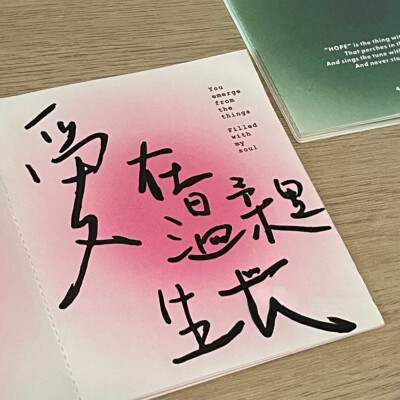 You
emerge
from
the
things
Filled
with
my
soul
爱在
温柔里
生长
"HOPE" is the thing wit
That perches in th
And sings the tune with
And never sto